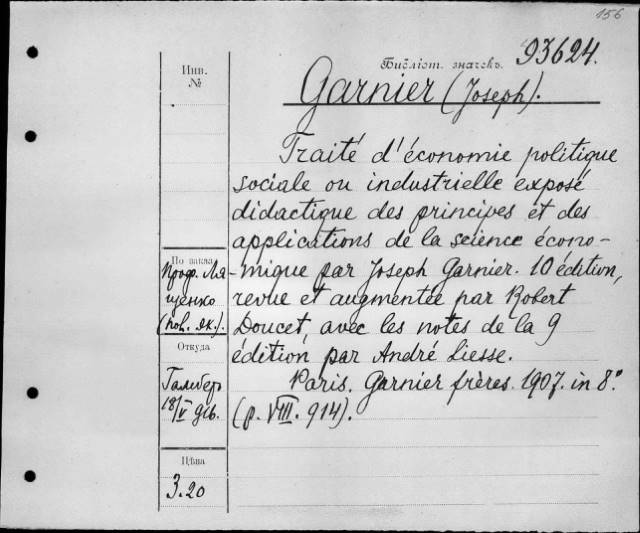 156
Библіот. значекъ. 93624.
Инв.
№
Garnier (Joseph).
Traité d'économie politique
sociale ou industrielle exposé
didactique des principes et des
applications de la science écono-
mique par Joseph Garnier. 10 édition,
revue et augmentée par Robert
Doucet, avec les notes de la 9
édition par André Liesse.
Paris. Garnier frères. 1907. in 8.°
(p. VIII. 914).
По заказ
Проф. Ля-
щенко
(пов. эк.).
Откуда
18/V 916.
Цѣна
3.20